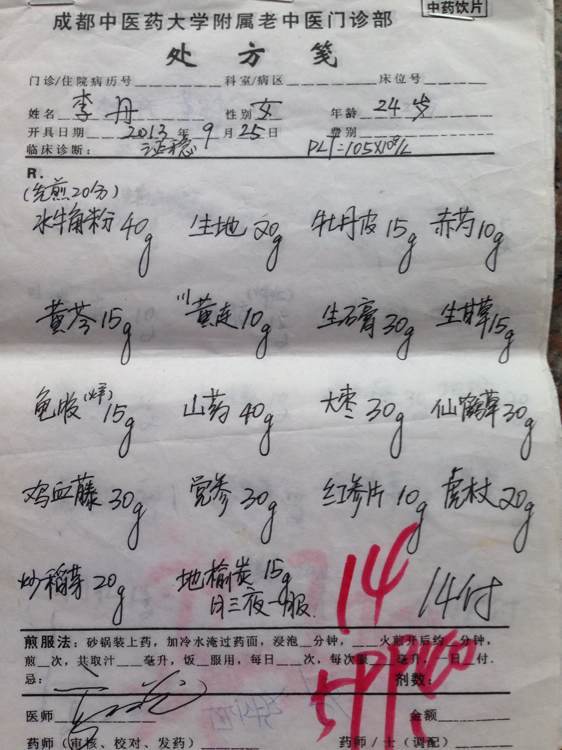 中药饮片
成都中医药大学附属老中医门诊部
处方笺
门诊/住院病历号 科室/病区 床位号
姓名 李丹 性别 女 年龄 24岁
开具日期 2013年9月25日 费别
临床诊断: 证稳 PLT=105X10⁹/L
R.
(先煎20分)
水牛角粉40g 生地20g 牡丹皮15g 赤芍10g
黄芩15g 川黄连10g 生石膏30g 生甘草15g
龟板(烊)15g 山药40g 大枣30g 仙鹤草30g
鸡血藤30g 党参30g 红参片10g 虎杖20g
炒稻芽20g 地榆炭15g 14 14付
日三夜一服.
煎服法: 砂锅装上药,加冷水淹过药面,浸泡 分钟, 火煎开后约 分钟,
煎 次,共取汁 毫升,饭 服用,每日 次,每次服 毫升,一日 付.
忌: 剂数:
医师 金额
药师(审核、校对、发药) 药师/士(调配)